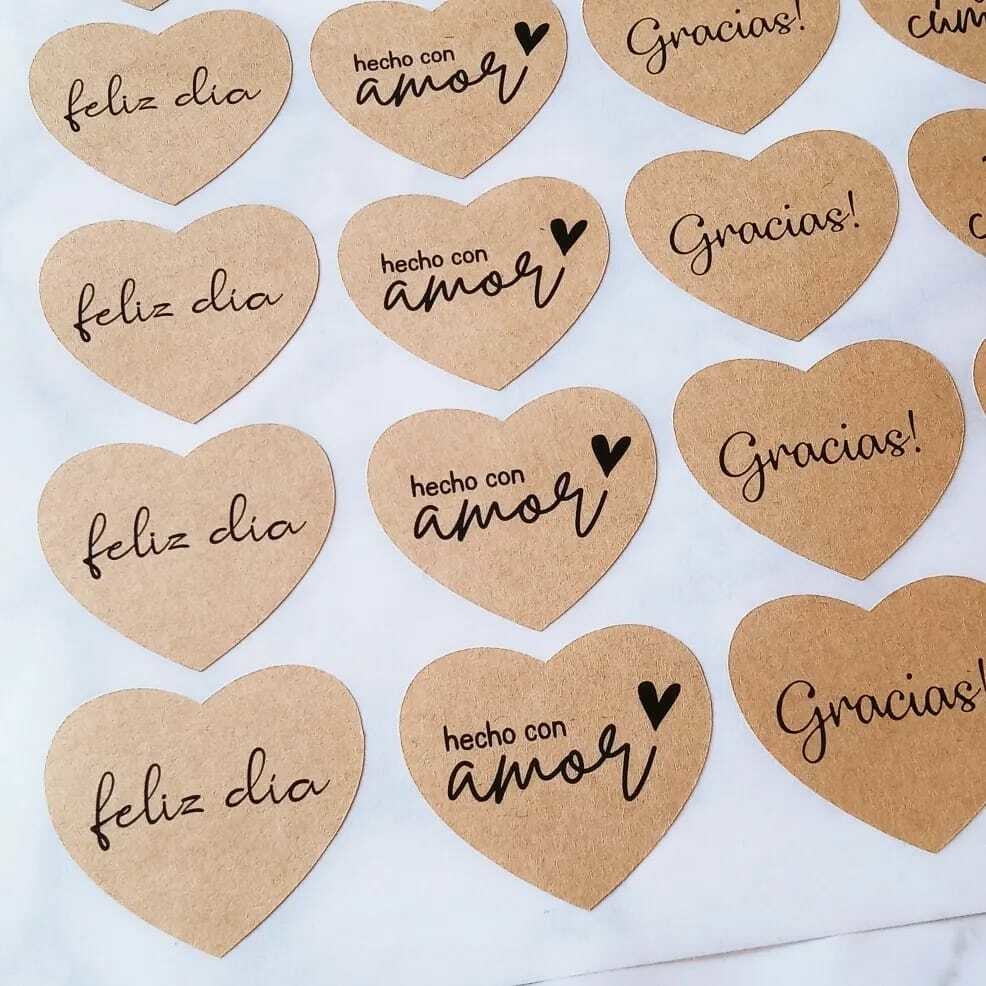 feliz día
hecho con
amor
Gracias!
feliz día
hecho con
amor
Gracias!
feliz día
hecho con
amor
Gracias!
feliz día
hecho con
amor
Gracias!